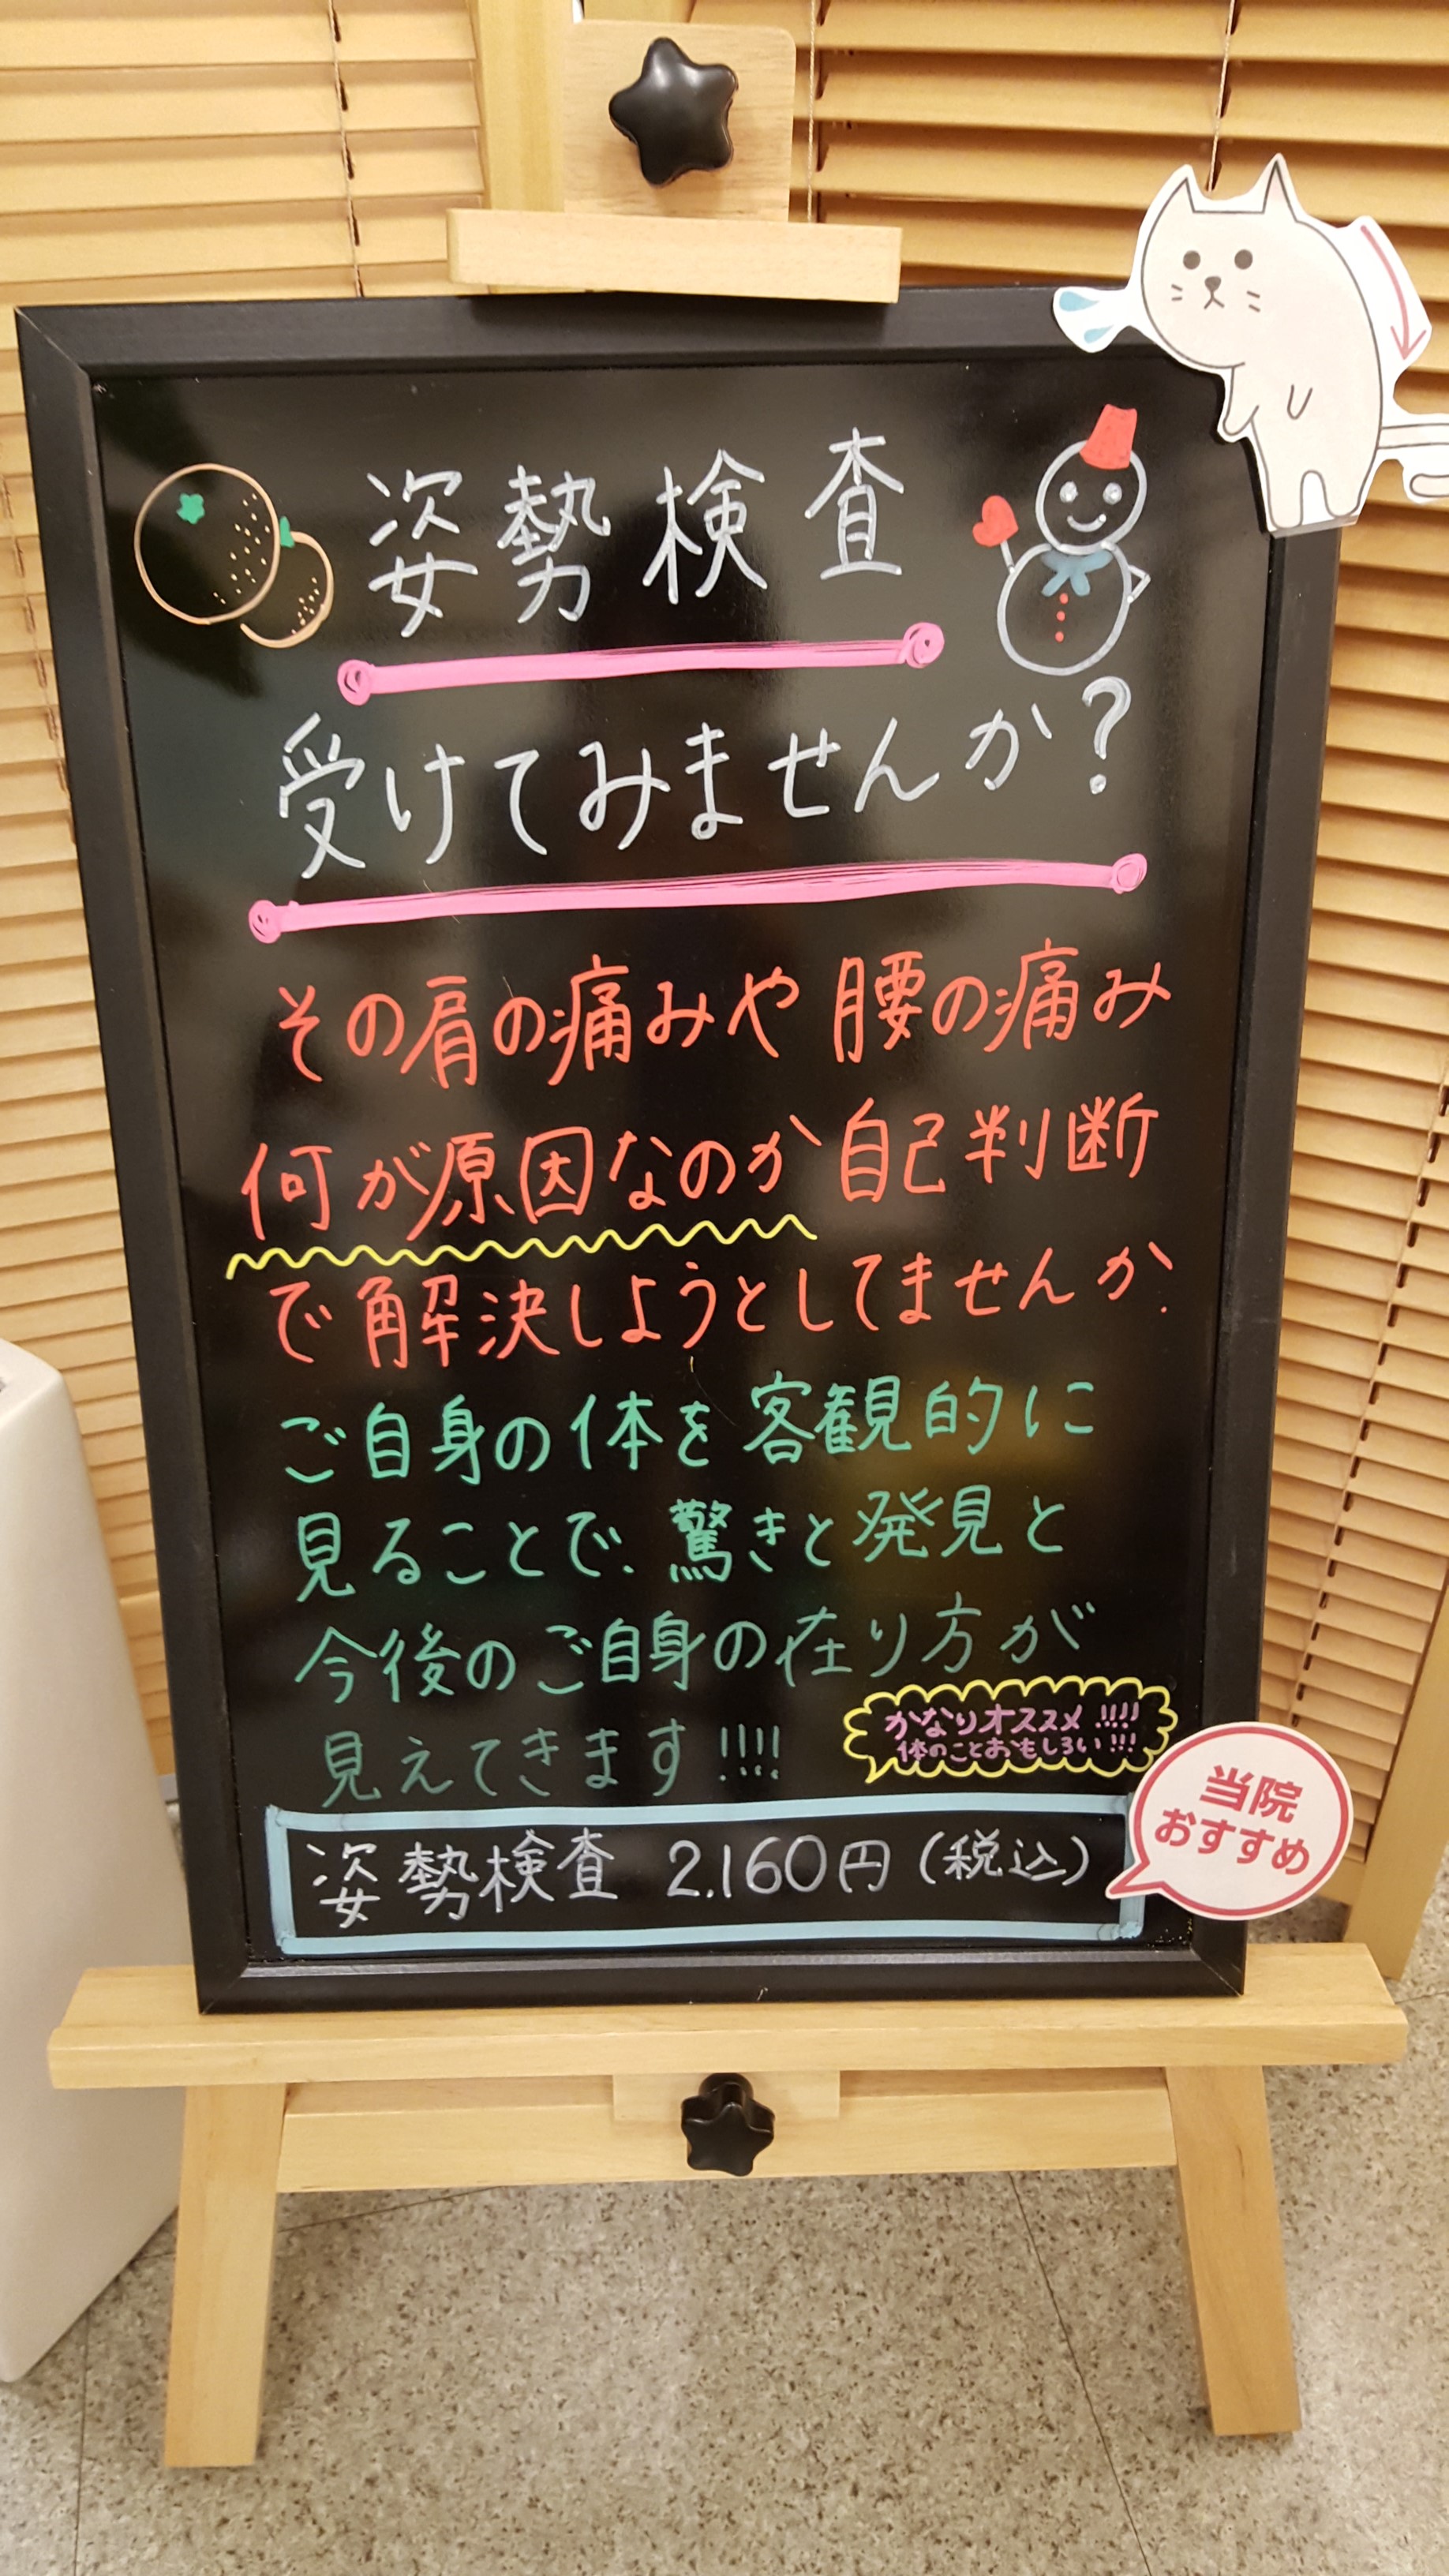 姿勢検査
受けてみませんか?
その肩の痛みや腰の痛み
何が原因なのか自己判断
で解決しようとしてませんか.
ご自身の体を客観的に
見ることで、驚きと発見と
今後のご自身の在り方が
見えてきます!!!!
かなりオススメ!!!!
体のことおもしろい!!!
当院
おすすめ
姿勢検査 2,160円(税込)